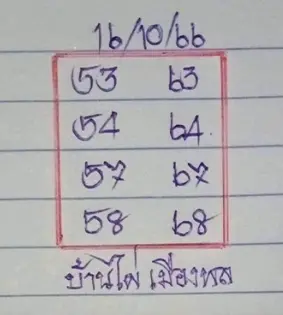 16/10/66
53 63
54 64.
57 67
58 68
บ้านไผ่ เมืองพล